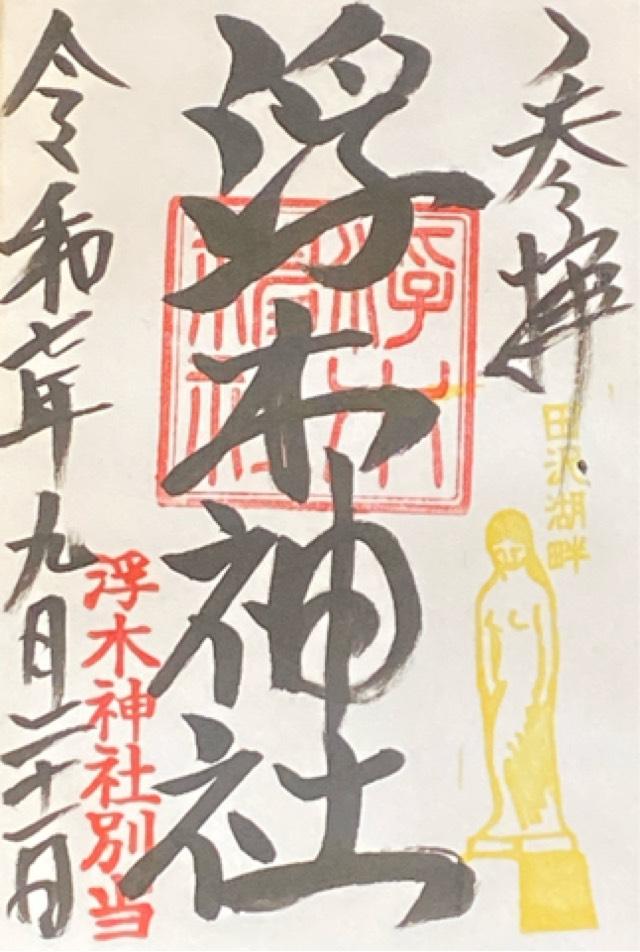 参拝
田沢湖畔
浮木神社
浮木神社
浮木神社別当
令和七年九月二十一日